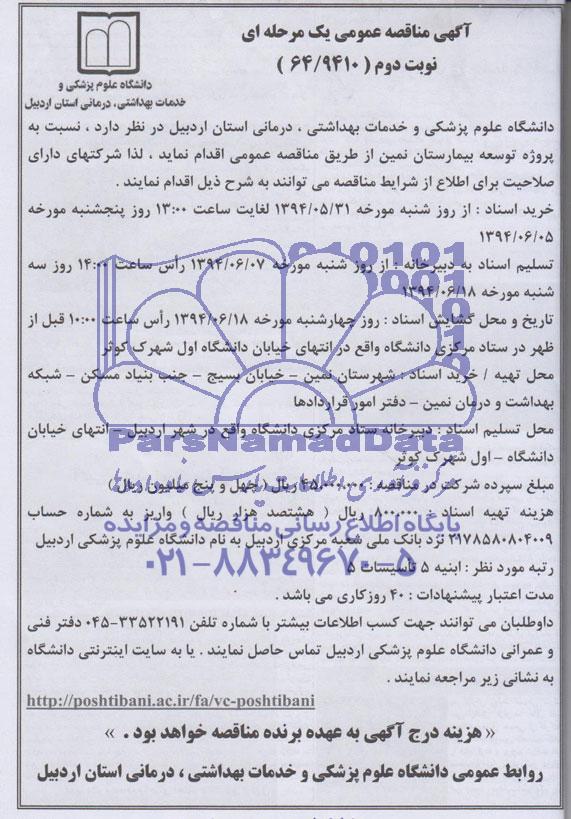 آگهی مناقصه عمومی یک مرحله ای
نوبت دوم ( ۶۴/۹۴۱۰ )
دانشگاه علوم پزشکی و
خدمات بهداشتی، درمانی استان اردبیل
دانشگاه علوم پزشکی و خدمات بهداشتی ، درمانی استان اردبیل در نظر دارد ، نسبت به
پروژه توسعه بیمارستان نمین از طریق مناقصه عمومی اقدام نماید ، لذا شرکتهای دارای
صلاحیت برای اطلاع از شرایط مناقصه می توانند به شرح ذیل اقدام نمایند .
خرید اسناد : از روز شنبه مورخه ۱۳۹۴/۰۵/۳۱ لغایت ساعت ۱۳:۰۰ روز پنجشنبه مورخه
۱۳۹۴/۰۶/۰۵
تسلیم اسناد به دبیرخانه : از روز شنبه مورخه ۱۳۹۴/۰۶/۰۷ رأس ساعت ۱۴:۰۰ روز سه
شنبه مورخه ۱۳۹۴/۰۶/۱۸
تاریخ و محل گشایش اسناد : روز چهارشنبه مورخه ۱۳۹۴/۰۶/۱۸ رأس ساعت ۱۰:۰۰ قبل از
ظهر در ستاد مرکزی دانشگاه واقع در انتهای خیابان دانشگاه اول شهرک کوثر
محل تهیه / خرید اسناد : شهرستان نمین – خیابان بسیج – جنب بنیاد مسکن – شبکه
بهداشت و درمان نمین – دفتر امور قراردادها
محل تسلیم اسناد : دبیرخانه ستاد مرکزی دانشگاه واقع در شهر اردبیل – انتهای خیابان
دانشگاه – اول شهرک کوثر
ParsNamadData
مبلغ سپرده شرکت در مناقصه : ۴۵،۰۰۰،۰۰۰ ریال ( چهل و پنج میلیون ریال )
هزینه تهیه اسناد : ۸۰۰،۰۰۰ ریال ( هشتصد هزار ریال ) واریز به شماره حساب
پایگاه اطلاع رسانی مناقصه و مزایده
۲۱۷۸۵۸۰۸۰۴۰۰۹ نزد بانک ملی شعبه مرکزی اردبیل به نام دانشگاه علوم پزشکی اردبیل
۰۲۱-۸۸۳۴۹۶۷۰-۵
رتبه مورد نظر : ابنیه ۵ تأسیسات ۵
مدت اعتبار پیشنهادات : ۴۰ روزکاری می باشد .
داوطلبان می توانند جهت کسب اطلاعات بیشتر با شماره تلفن ۳۳۵۲۲۱۹۱-۰۴۵ دفتر فنی
و عمرانی دانشگاه علوم پزشکی اردبیل تماس حاصل نمایند . یا به سایت اینترنتی دانشگاه
به نشانی زیر مراجعه نمایند .
http://poshtibani.ac.ir/fa/vc-poshtibani
« هزینه درج آگهی به عهده برنده مناقصه خواهد بود . »
روابط عمومی دانشگاه علوم پزشکی و خدمات بهداشتی ، درمانی استان اردبیل